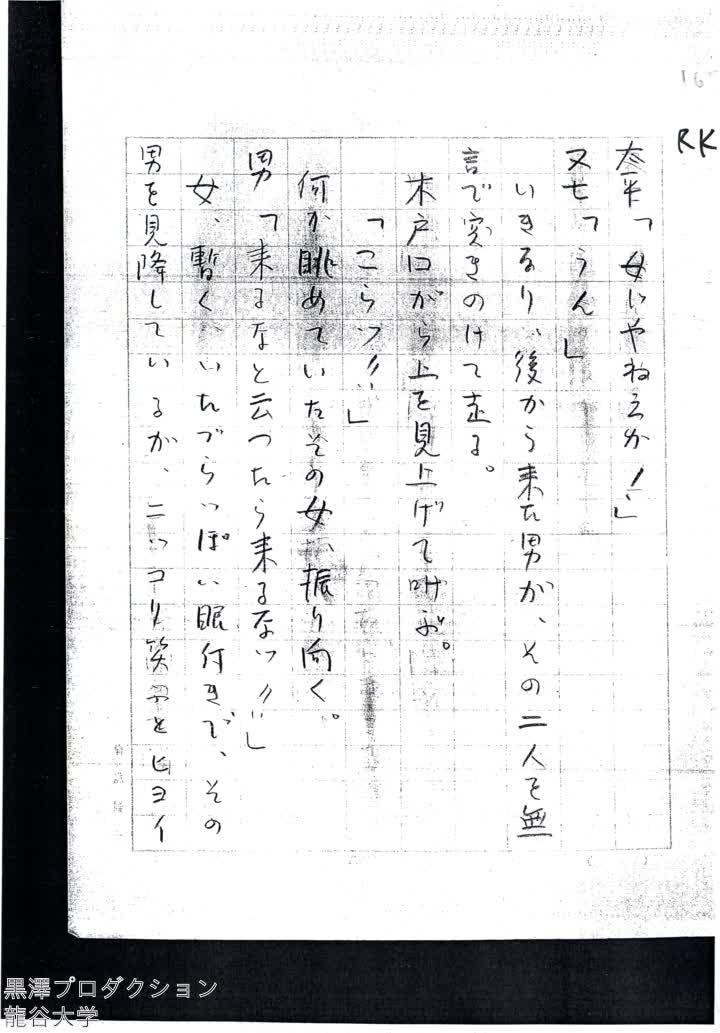 165
RK
太平「女じやねえか!」
又七「うん」
いきなり、後から来た男が、その二人を無
言で突きのけて走る。
木戸口から上を見上げて叫ぶ。
「こらッ!!」
何か眺めていたその女、振り向く。
男「来るなと云つたら来るなッ!!」
女、暫く、いたづらつぽい眼付きで、その
男を見降しているが、ニッコリ笑ふとヒヨイ
黒澤プロダクション
龍谷大学